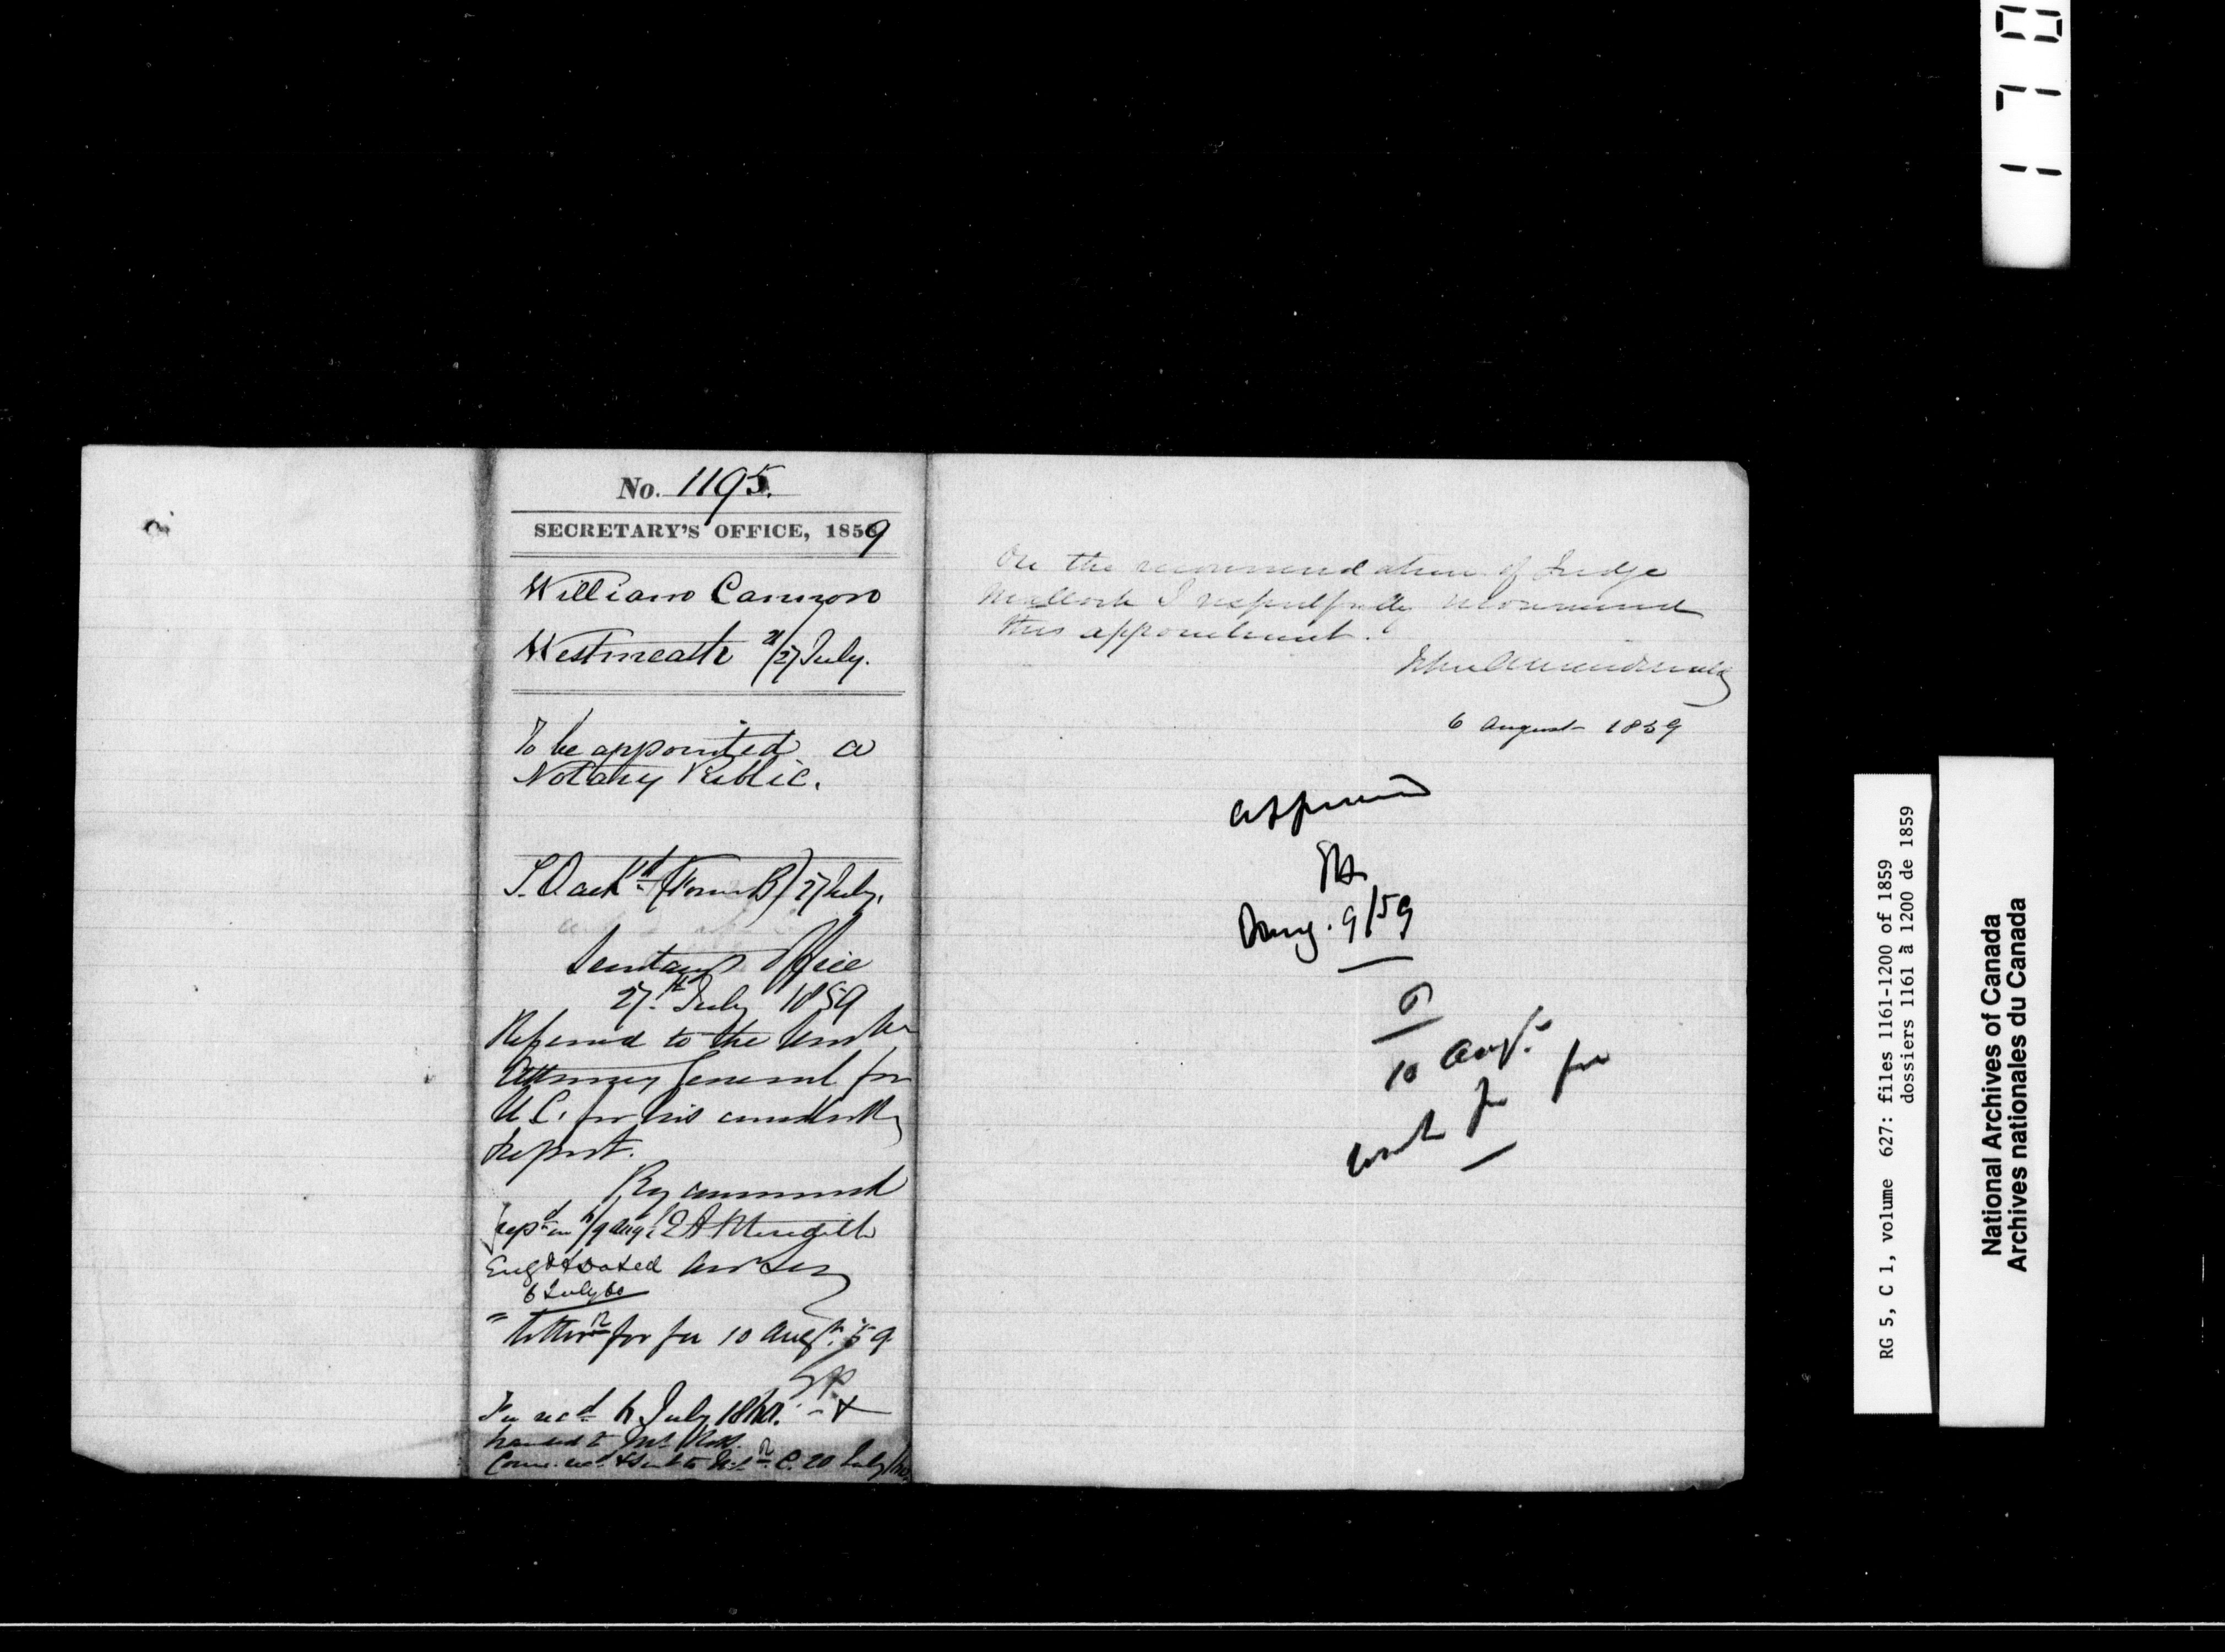 No. 1195.
SECRETARY'S OFFICE, 1859
William Cannon
Westmeath 21/27 July.
To be appointed a
Notary Public.
(Form B) 27 July.
Secretary's Office
27th July 1859
Referred to the
Attorney General for
U.C. for his
Report.
By command
E A Meredith
Engd & dated
6 July 60
" for fee 10 Augt. 59
Fee recd 6 July 1860.
handed to Mr
20 July
On the recommendation of Judge
Mallock I respectfully recommend
this appointment.
John A Macdonald
6 August 1859
Approved
Aug. 9/59
10 Augt.
for fee
1170
RG 5, C 1, volume 627: files 1161-1200 of 1859
dossiers 1161 à 1200 de 1859
National Archives of Canada
Archives nationales du Canada